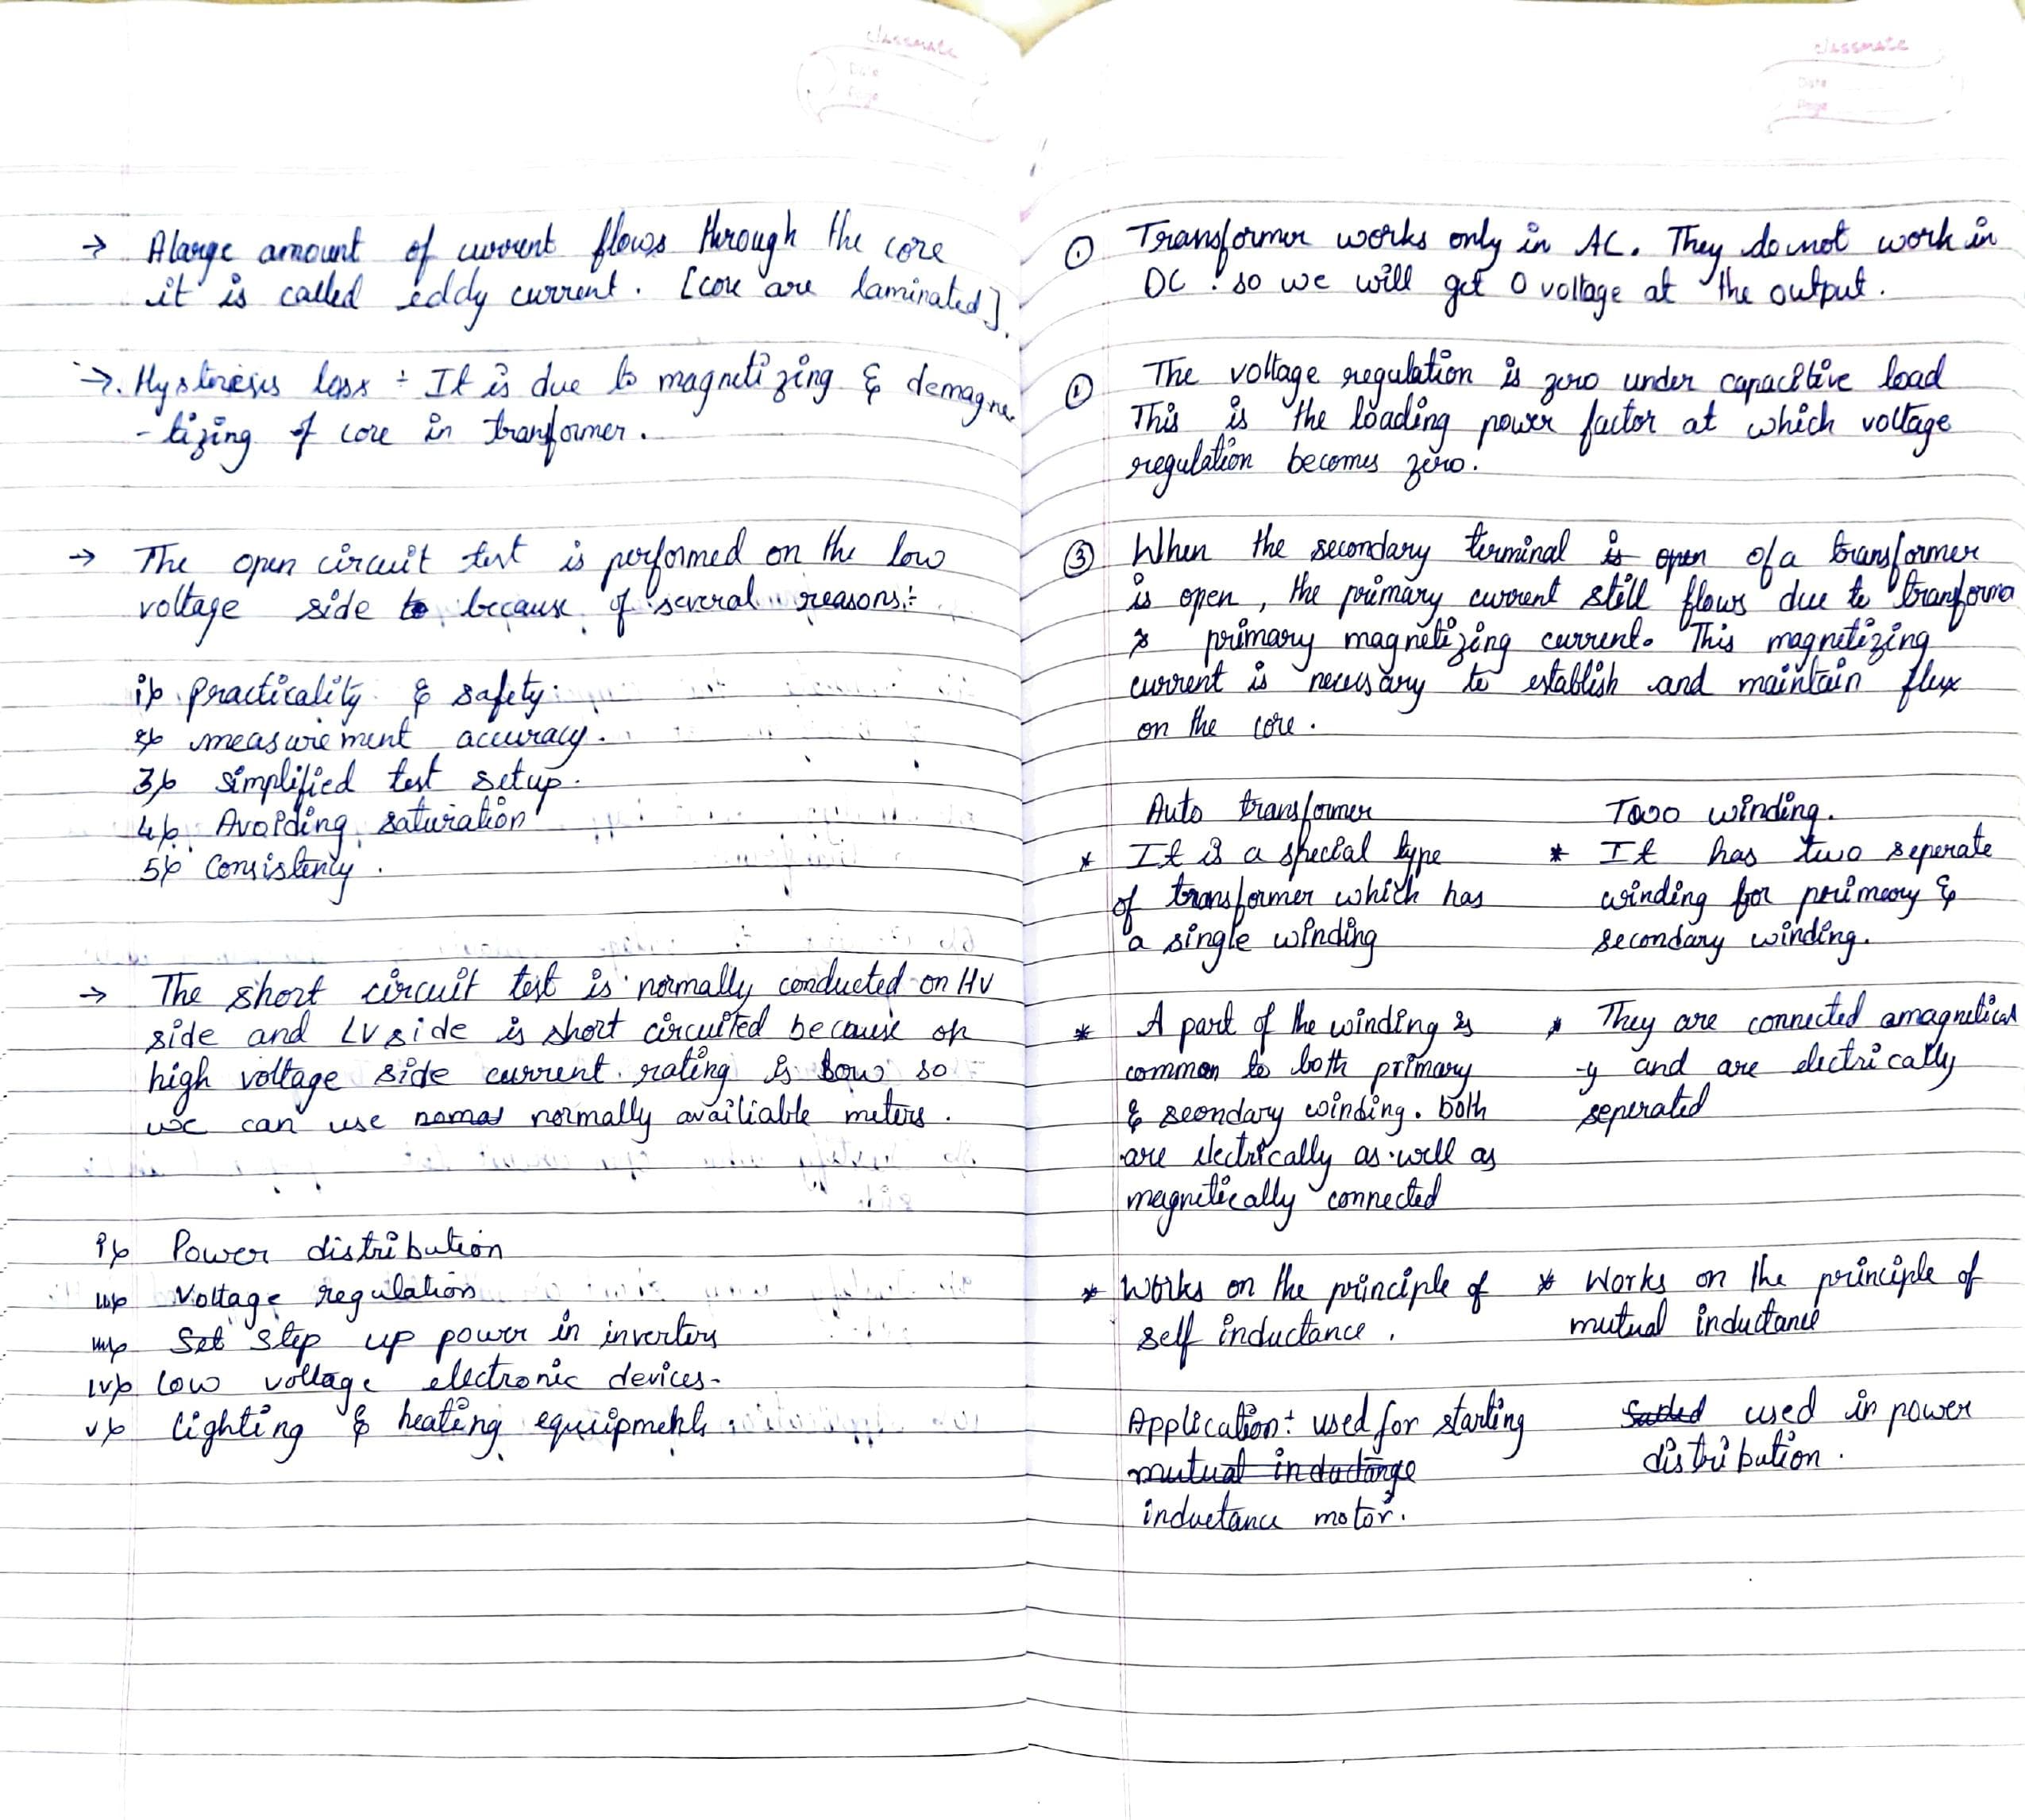 classmate
Date
Page
→ A large amount of current flows through the core
it is called eddy current. [core are laminated].
→. Hysteresis loss ÷ It is due to magnetizing & demagne
- tizing of core in tranformer.
→ The open circuit test is performed on the low
voltage side to because of several reasons:-
i) practicality & safety.
2) measurement accuracy.
3) simplified test setup.
4) Avoiding saturation
5) Consistency.
→ The short circuit test is normally conducted on HV
side and LV side is short circuited because on
high voltage side current rating is low so
we can use normally availiable meters.
i) Power distribution
ii) Voltage regulation
iii) Set step up power in invertors
iv) low voltage electronic devices.
v) lighting & heating equipments.
classmate
Date
Page
① Transformer works only in AC. They do not work in
DC. so we will get 0 voltage at the output.
② The voltage regulation is zero under capacitive load
This is the loading power factor at which voltage
regulation becomes zero.
③ When the secondary terminal is open of a transformer
is open, the primary current still flows due to tranforma
primary magnetizing current. This magnetizing
current is necessary to establish and maintain flux
on the core.
Auto transformer
* It is a special type
of transformer which has
a single winding
* A part of the winding is
common to both primary
& seondary winding. both
are electrically as well as
magnetically connected
* Works on the principle of
self inductance.
Application: used for starting
mutual inductange
inductance motor.
Two winding.
* It has two seperate
winding for primary &
secondary winding.
* They are connected amagnetical
-y and are electrically
seperated
* Works on the principle of
mutual inductance
used in power
distribution.